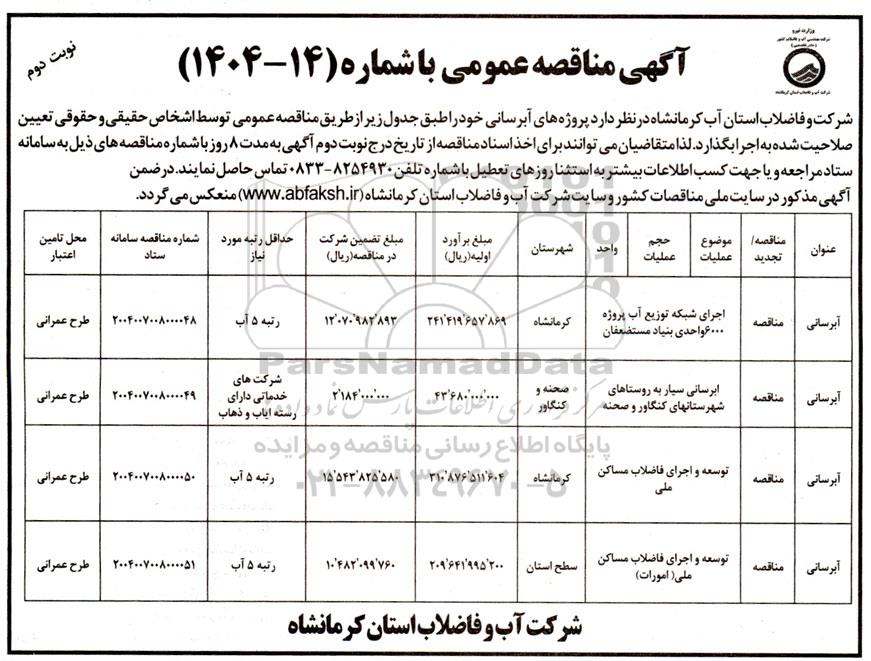 وزارت نیرو
شرکت مهندسی آب و فاضلاب کشور
(مادر تخصصی)
شرکت آب و فاضلاب استان کرمانشاه
نوبت دوم
آگهی مناقصه عمومی با شماره (۱۴-۱۴۰۴)
شرکت و فاضلاب استان آب کرمانشاه در نظر دارد پروژه های آبرسانی خود را طبق جدول زیر از طریق مناقصه عمومی توسط اشخاص حقیقی و حقوقی تعیین
صلاحیت شده به اجرا بگذارد. لذا متقاضیان می توانند برای اخذ اسناد مناقصه از تاریخ درج نوبت دوم آگهی به مدت ۸ روز با شماره مناقصه های ذیل به سامانه
ستاد مراجعه و یا جهت کسب اطلاعات بیشتر به استثنا روزهای تعطیل با شماره تلفن ۸۲۵۴۹۳۰-۰۸۳۳ تماس حاصل نمایند. در ضمن
آگهی مذکور در سایت ملی مناقصات کشور و سایت شرکت آب و فاضلاب استان کرمانشاه (www.abfaksh.ir) منعکس می گردد.
عنوان | مناقصه/ تجدید | موضوع عملیات | حجم عملیات | واحد | شهرستان | مبلغ برآورد اولیه(ریال) | مبلغ تضمین شرکت در مناقصه(ریال) | حداقل رتبه مورد نیاز | شماره مناقصه سامانه ستاد | محل تامین اعتبار
آبرسانی | مناقصه | اجرای شبکه توزیع آب پروژه ۶۰۰۰واحدی بنیاد مستضعفان | کرمانشاه | ۲۴۱٬۴۱۹٬۶۵۷٬۸۶۹ | ۱۲٬۰۷۰٬۹۸۲٬۸۹۳ | رتبه ۵ آب | ۲۰۰۴۰۰۷۰۰۸۰۰۰۰۴۸ | طرح عمرانی
آبرسانی | مناقصه | ابرسانی سیار به روستاهای شهرستانهای کنگاور و صحنه | صحنه و کنگاور | ۴۳٬۶۸۰٬۰۰۰٬۰۰۰ | ۲٬۱۸۴٬۰۰۰٬۰۰۰ | شرکت های خدماتی دارای رسته ایاب و ذهاب | ۲۰۰۴۰۰۷۰۰۸۰۰۰۰۴۹ | طرح عمرانی
آبرسانی | مناقصه | توسعه و اجرای فاضلاب مساکن ملی | کرمانشاه | ۳۱۰٬۸۷۶٬۵۱۱٬۶۰۴ | ۱۵٬۵۴۳٬۸۲۵٬۵۸۰ | رتبه ۵ آب | ۲۰۰۴۰۰۷۰۰۸۰۰۰۰۵۰ | طرح عمرانی
آبرسانی | مناقصه | توسعه و اجرای فاضلاب مساکن ملی( امورات) | سطح استان | ۲۰۹٬۶۴۱٬۹۹۵٬۲۰۰ | ۱۰٬۴۸۲٬۰۹۹٬۷۶۰ | رتبه ۵ آب | ۲۰۰۴۰۰۷۰۰۸۰۰۰۰۵۱ | طرح عمرانی
ParsNamadData
پایگاه اطلاع رسانی مناقصه و مزایده
۰۲۱-۸۸۳۴۹۶۷۰-۵
شرکت آب و فاضلاب استان کرمانشاه